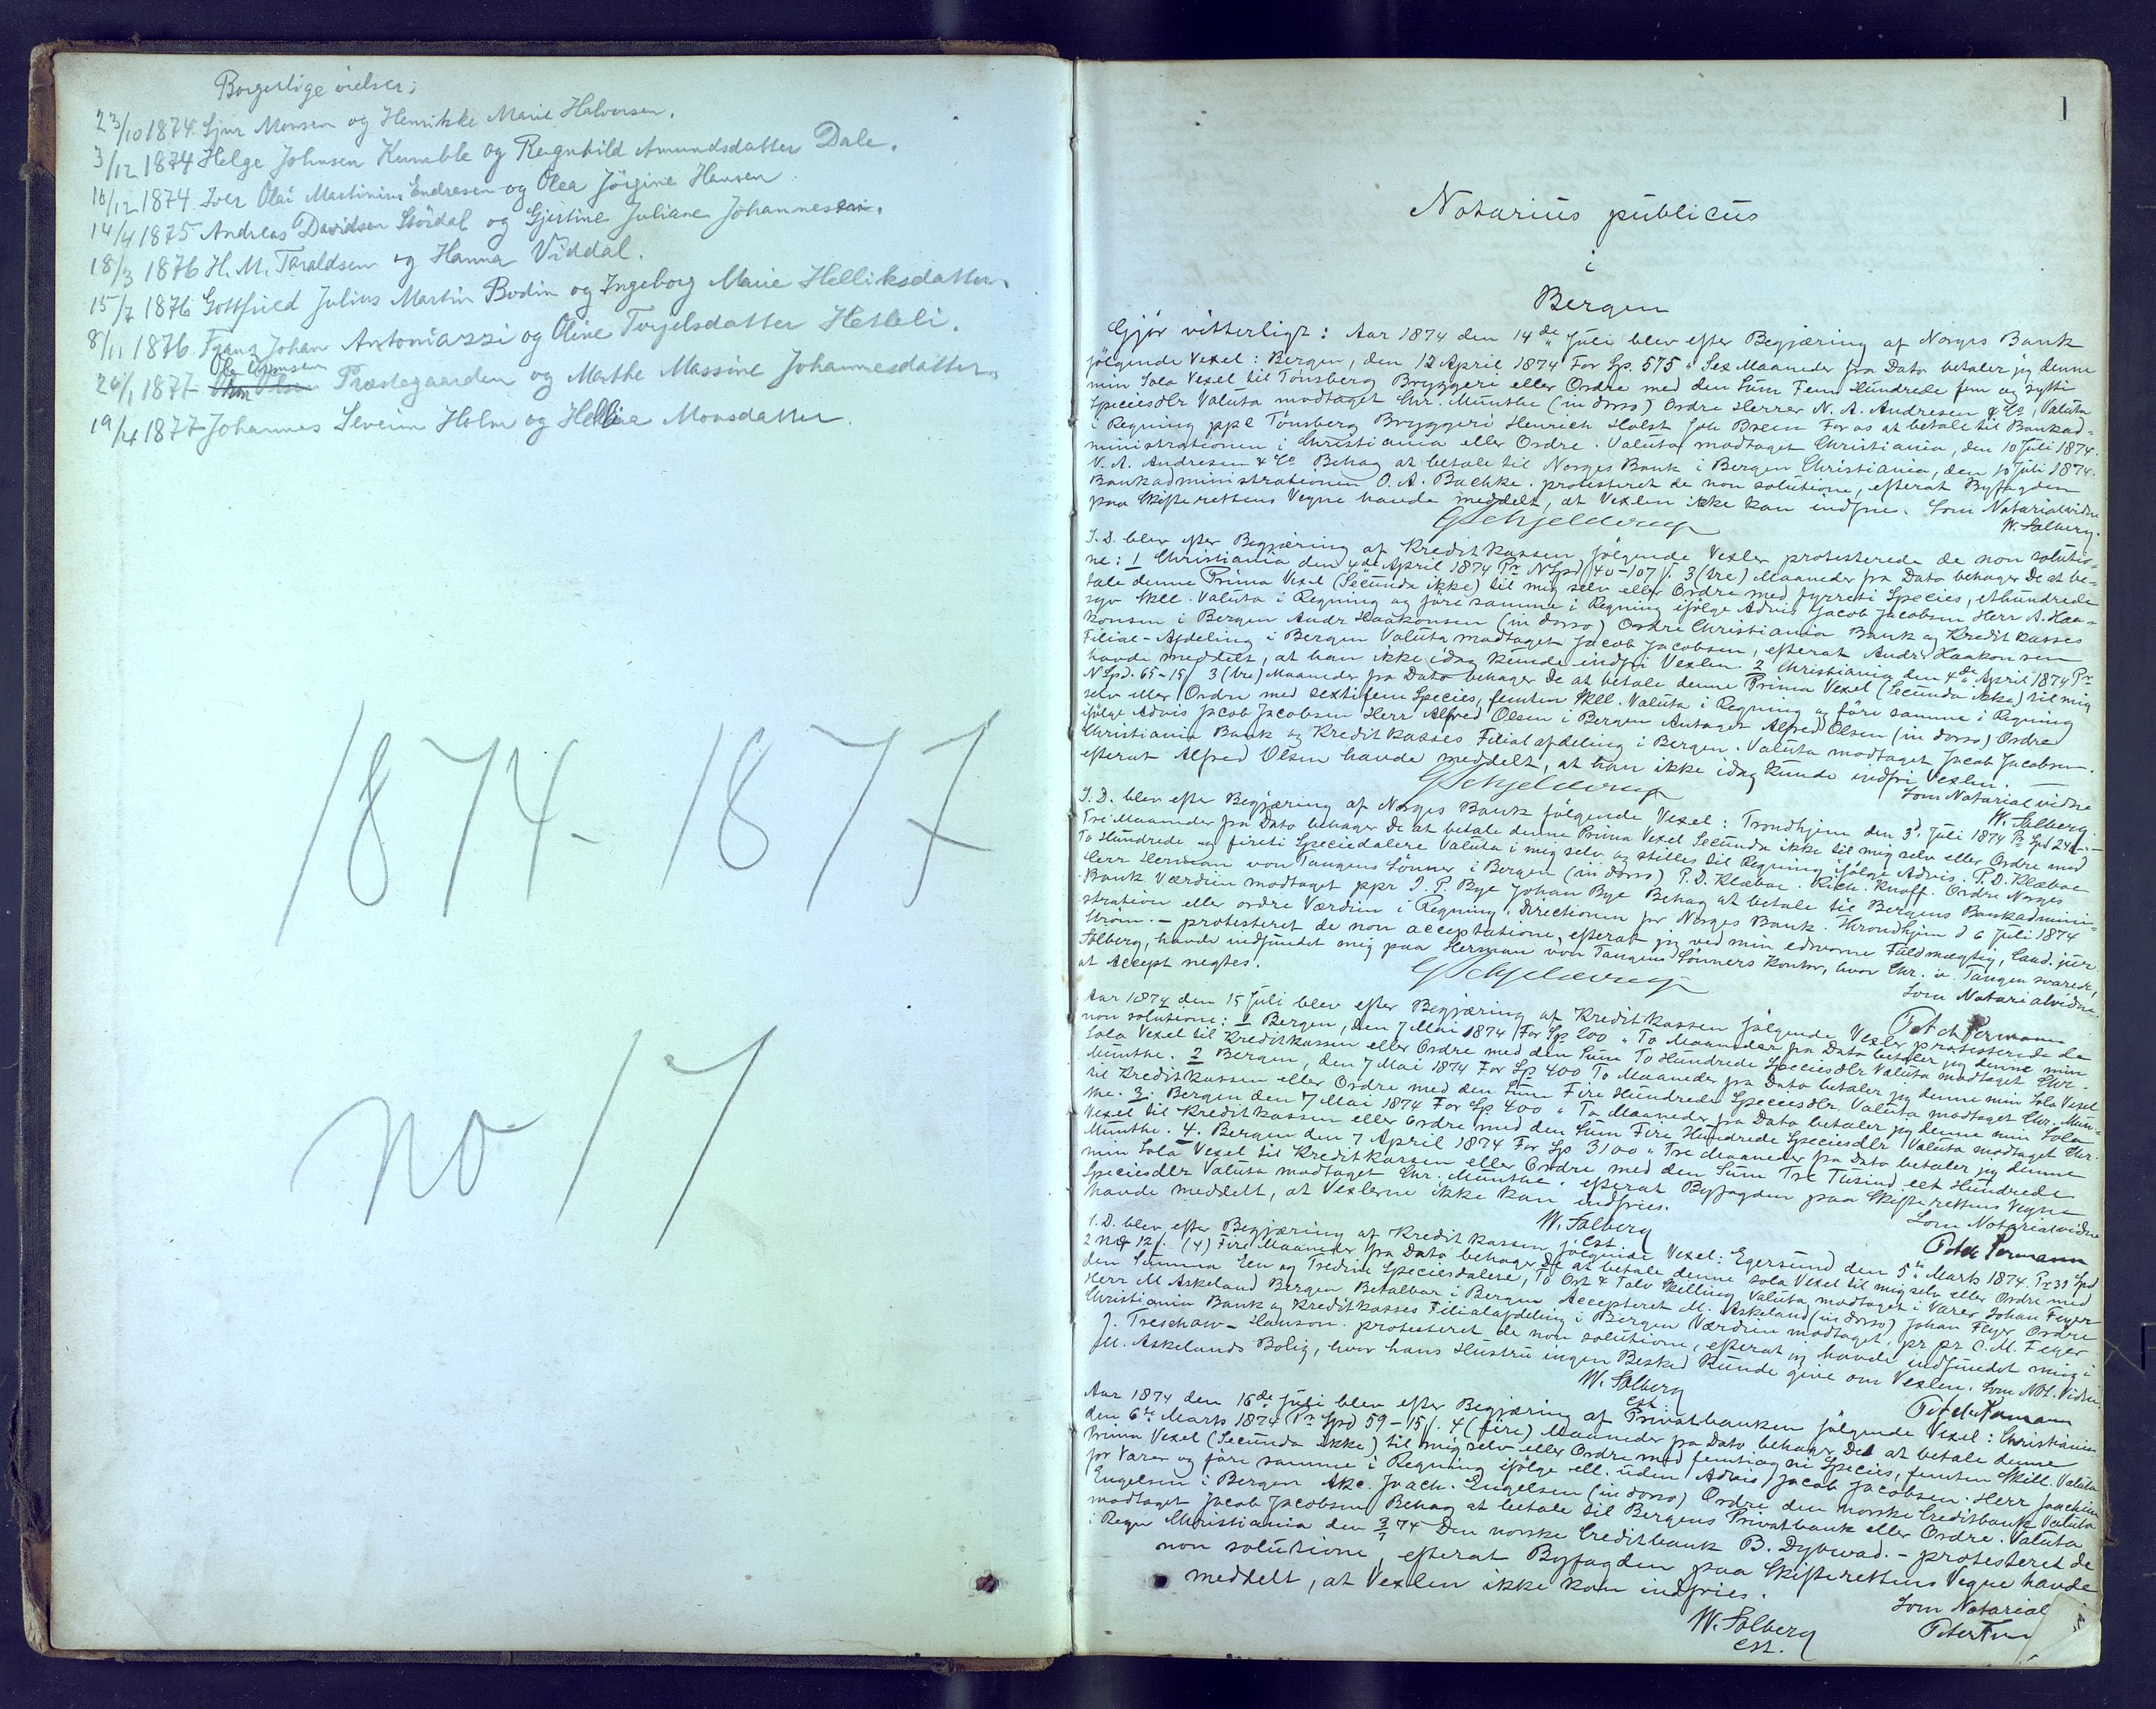 Borgerlige vielser:
23/10 1874 Sjur Monsen og Henrikke Marie Halvorsen.
3/12 1874 Helge Johnsen Kumble og Ragnhild Amundsdatter Dale.
16/12 1874. Iver Olai Martinius Endresen og Olea Jörgine Hansen
14/4 1875 Andreas Davidsen Stördal og Gjertine Juliane Johannesen.
18/3 1876 H. M. Taraldsen og Hanna Viddal.
15/7 1876 Gottfried Julius Martin Bodin og Ingeborg Marie Helliksdatter.
8/11 1876 Franz Johan Antoniazzi og Oline Torjelsdatter Hetleli.
26/1 1877 Præstegaarden og Marthe Massine Johannesdatter.
19/4 1877 Johannes Severin Holm og Monsdatter.
1874 - 1877
no 17
1
Notarius publicus
i
Bergen
Gjör vitterligt: Aar 1874 den 14de Juli blev efter Begjæring af Norges Bank
fölgende Vexel: Bergen, den 12 April 1874 For Sp. 575 " Sex Maaneder fra Dato betaler jeg denne
min Sola Vexel til Tønsberg Bryggeri eller Ordre med den Sum Fem Hundrede fem og sytti
Speciesdlr Valuta modtaget Chr. Münthe (in dorso) Ordre Herrer N. A. Andresen & Co, Valuta
i Regning ppc Tønsberg Bryggeri Henrich Holst Joh Breien For os at betale til Bankad-
ministrationen i Christiania eller Ordre. Valuta modtaget Christiania, den 10 Juli 1874.
N. A. Andresen & Co Behag at betale til Norges Bank i Bergen Christiania, den 10 Juli 1874.
Bankadministrationen O. A. Bachke. protesteret de non solutione, efterat Byfogden
paa Skifterettens Vegne havde meddelt, at Vexlen ikke kan indfrie. Som Notarialvidne
GSchjelderup W. Solberg.
S. D. blev efter Begjæring af Kreditkassen fölgende Vexler protesterede de non solutio-
ne: 1 Christiania den 4de April 1874 Pr N Spd 40-107 ſ. 3 (tre) Maaneder fra Dato behager De at be-
tale denne Prima Vexel (Secunda ikke) til mig selv eller Ordre med fyrreti Species, ethundrede
syv Skll. Valuta i Regning og före samme i Regning ifölge Advis Jacob Jacobsen Herr A. Haa-
konsen i Bergen Andr Haakonsen (in dorso) Ordre Christiania Bank og Kreditkasses
Filial-Afdeling i Bergen Valuta modtaget Jacob Jacobsen, efterat Andr Haakonsen
havde meddelt, at han ikke idag kunde indfri Vexlen. 2 Christiania den 4de April 1874 Pr
N Spd. 65-15 ſ 3 (tre) Maaneder fra Dato behager De at betale denne Prima Vexel (Secunda ikke) til mig
selv eller Ordre med sextifem Species, femten Skll. Valuta i Regning og före samme i Regning
ifölge Advis Jacob Jacobsen Herr Alfred Olsen i Bergen Antaget Alfred Olsen (in dorso) Ordre
Christiania Bank og Kreditkasses Filialafdeling i Bergen. Valuta modtaget Jacob Jacobsen.
efterat Alfred Olsen havde meddelt, at han ikke idag kunde indfri Vexlen. —
GSchjelderup Som Notarialvidne
W. Solberg.
S. D. blev efter Begjæring af Norges Bank fölgende Vexel: Trondhjem den 3d. Juli 1874 Pr Spd 240.—
Tre Maaneder fra Dato behager De at betale denne Prima Vexel Secunda ikke til mig selv eller Ordre med
To Hundrede og firti Speciedalere Valuta i mig selv og stilles til Regning ifölge Advis. P. D. Klæboe
Herr Herman von Tangens Sönner i Bergen (in dorso) P. D. Klæboe. Rich. Knoff. Ordre Norges
Bank Værdien modtaget ppr I. P. Bye Johan Bye Behag at betale til Bergens Bankadmini-
stration eller ordre Værdien i Regning. Directionen for Norges Bank. Throndhjem d 6 Juli 1874
Ström. — protesteret de non acceptatione, efterat jeg ved min edsvorne Fuldmægtig, Cand. jur.
Solberg, havde indfundet mig paa Herman von Tangens Sönners Kontor, hvor Chr. v. Tangen svarede,
at Accept negtes.
GSchjelderup Som Notarialvidne
Aar 1874 den 15 Juli blev efter Begjæring af Kreditkassen fölgende Vexler protesterede de
non solutione: 1 Bergen, den 7 Mai 1874 For Sp 200 " To Maaneder fra Dato betaler jeg denne min
Sola Vexel til Kreditkassen eller Ordre med den Sum To Hundrede Speciesdlr Valuta modtaget Chr.
Münthe. 2 Bergen, den 7 Mai 1874 For Sp 400 To Maaneder fra Dato betaler jeg denne min Sola Vexel
til Kreditkassen eller Ordre med den Sum Fire Hundrede Speciesdlr. Valuta modtaget Chr. Mün-
the. 3. Bergen den 7 Mai 1874 For Sp 400 " To Maaneder fra Dato betaler jeg denne min Sola
Vexel til Kreditkassen eller Ordre med den Sum Fire Hundrede Speciesdlr Valuta modtaget Chr.
Münthe. 4. Bergen den 7 April 1874 For Sp 3100 " Tre Maaneder fra Dato betaler jeg denne
min Sola Vexel til Kreditkassen eller Ordre med den Sum Tre Tusind eet Hundrede
Speciesdlr Valuta modtaget Chr. Münthe. efterat Byfogden paa Skifterettens Vegne
havde meddelt, at Vexlerne ikke kan indfries.
W. Solberg Som Notarialvidne
cst.
S. D. blev efter Begjæring af Kreditkassen fölgende Vexel: Egersund den 5te Marts 1874. Pr 31 Spd
2 12 ſ. (4) Fire Maaneder fra Dato behager De at betale denne Sola Vexel til mig selv eller Ordre med
den Summa Een og Tredive Speciesdalere, To Ort & Tolv Skilling Valuta modtaget i Varer Johan Feyer
Herr M Askeland Bergen Betalbar i Bergen Accepteret M. Askeland (in dorso) Johan Feyer Ordre
Christiania Bank og Kreditkasses Filialafdeling i Bergen Værdien modtaget pr pr C. M. Feyer
J. Treschow-Hanson. protesteret de non solutione, efterat jeg havde indfundet mig i
M. Askelands Bolig, hvor hans Hustru ingen Besked kunde give om Vexlen. Som Not. Vidne
W. Solberg
cst.
Aar 1874 den 16de Juli blev efter Begjæring af Privatbanken fölgende Vexel: Christiania
den 6te Marts 1874 Pr Spd 59-15 ſ. 4 (fire) Maaneder fra Dato behager De at betale denne
Prima Vexel (Secunda ikke) til mig selv eller Ordre med femti og ni Species, femten Skill. Valuta
for Varer og före samme i Regning ifölge ell. uden Advis Jacob Jacobsen. Herr Joachim
Engelsen i Bergen Akc. Joach. Engelsen (in dorso) Ordre den norske Creditbank Valuta
modtaget Jacob Jacobsen Behag at betale til Bergens Privatbank eller Ordre. Valuta
i Regn Christiania den 3/7 74 Den norske Creditbank B. Dybwad. — protesteret de
non solutione, efterat Byfogden paa Skifterettens Vegne havde
meddelt, at Vexlen ikke kan indfries.
W. Solberg Som Notarial
cst.